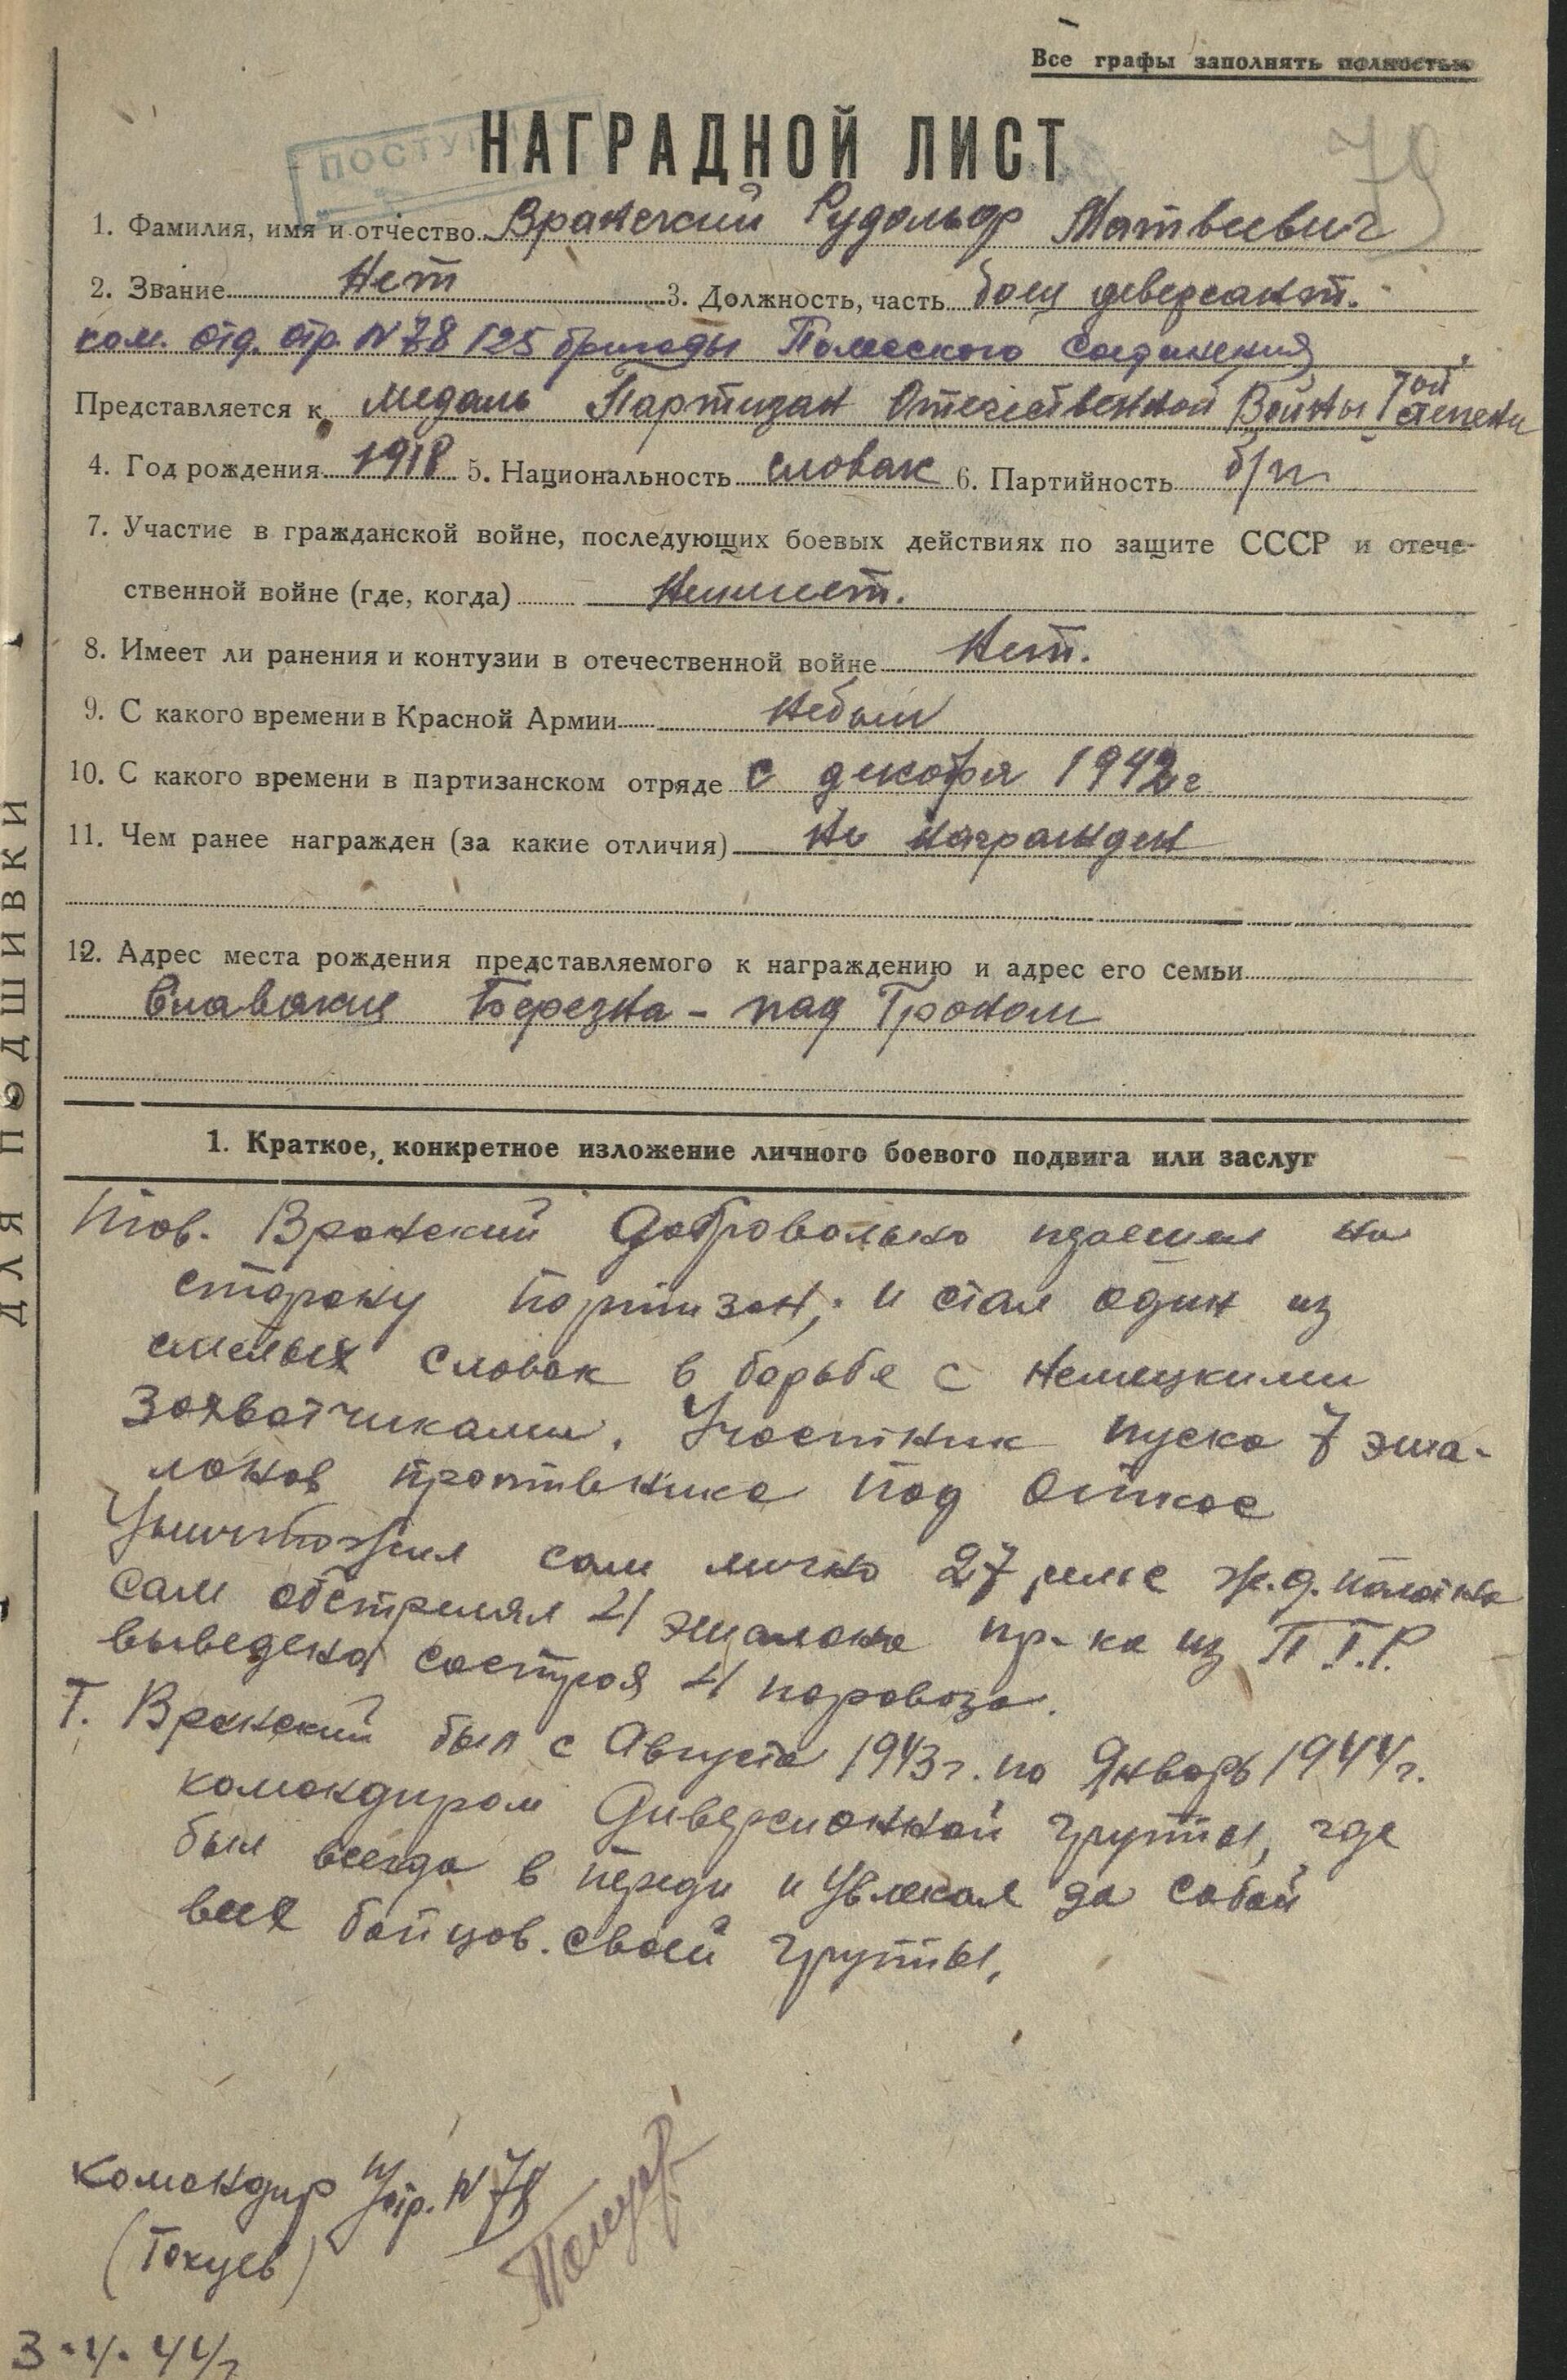 Все графы заполнять полностью
79
ПОСТУ
НАГРАДНОЙ ЛИСТ
1. Фамилия, имя и отчество Вранский Рудольф Матвеевич
2. Звание Нет 3. Должность, часть боец диверсант.
ком. отд. отр. N 78 125 бригады Полесского Соединения
Представляется к медаль Партизан Отечественной Войны I ой степени
4. Год рождения 1918 5. Национальность словак 6. Партийность б/п
7. Участие в гражданской войне, последующих боевых действиях по защите СССР и отече-
ственной войне (где, когда) Неимеет.
8. Имеет ли ранения и контузии в отечественной войне Нет.
9. С какого времени в Красной Армии небыл
10. С какого времени в партизанском отряде с декабря 1942 г
11. Чем ранее награжден (за какие отличия) Не награжден
12. Адрес места рождения представляемого к награждению и адрес его семьи
Славакия Березна - над Гроном
ДЛЯ ПОДШИВКИ
1. Краткое, конкретное изложение личного боевого подвига или заслуг
Тов. Вранский Добровольно на
сторону партизан, и стал один из
смелых словак в борьбе с немецкими
Захватчиками. Участник пуска 7 эша-
лонов противника под Откос
Уничтожил сам лично 27 ж.д. полотна
сам обстрелял 4 эшалона пр-ка из П.Т.Р.
выведено састроя 4 паровоза.
Т. Вранский был с Августа 1943 г. по Январь 1944 г.
командиром Диверсионной группы, где
был всегда в переди и Увлекал за собой
всех бойцов. своей группы,
Командир п/отр. N 78
(Токуев)
3.4.44 г